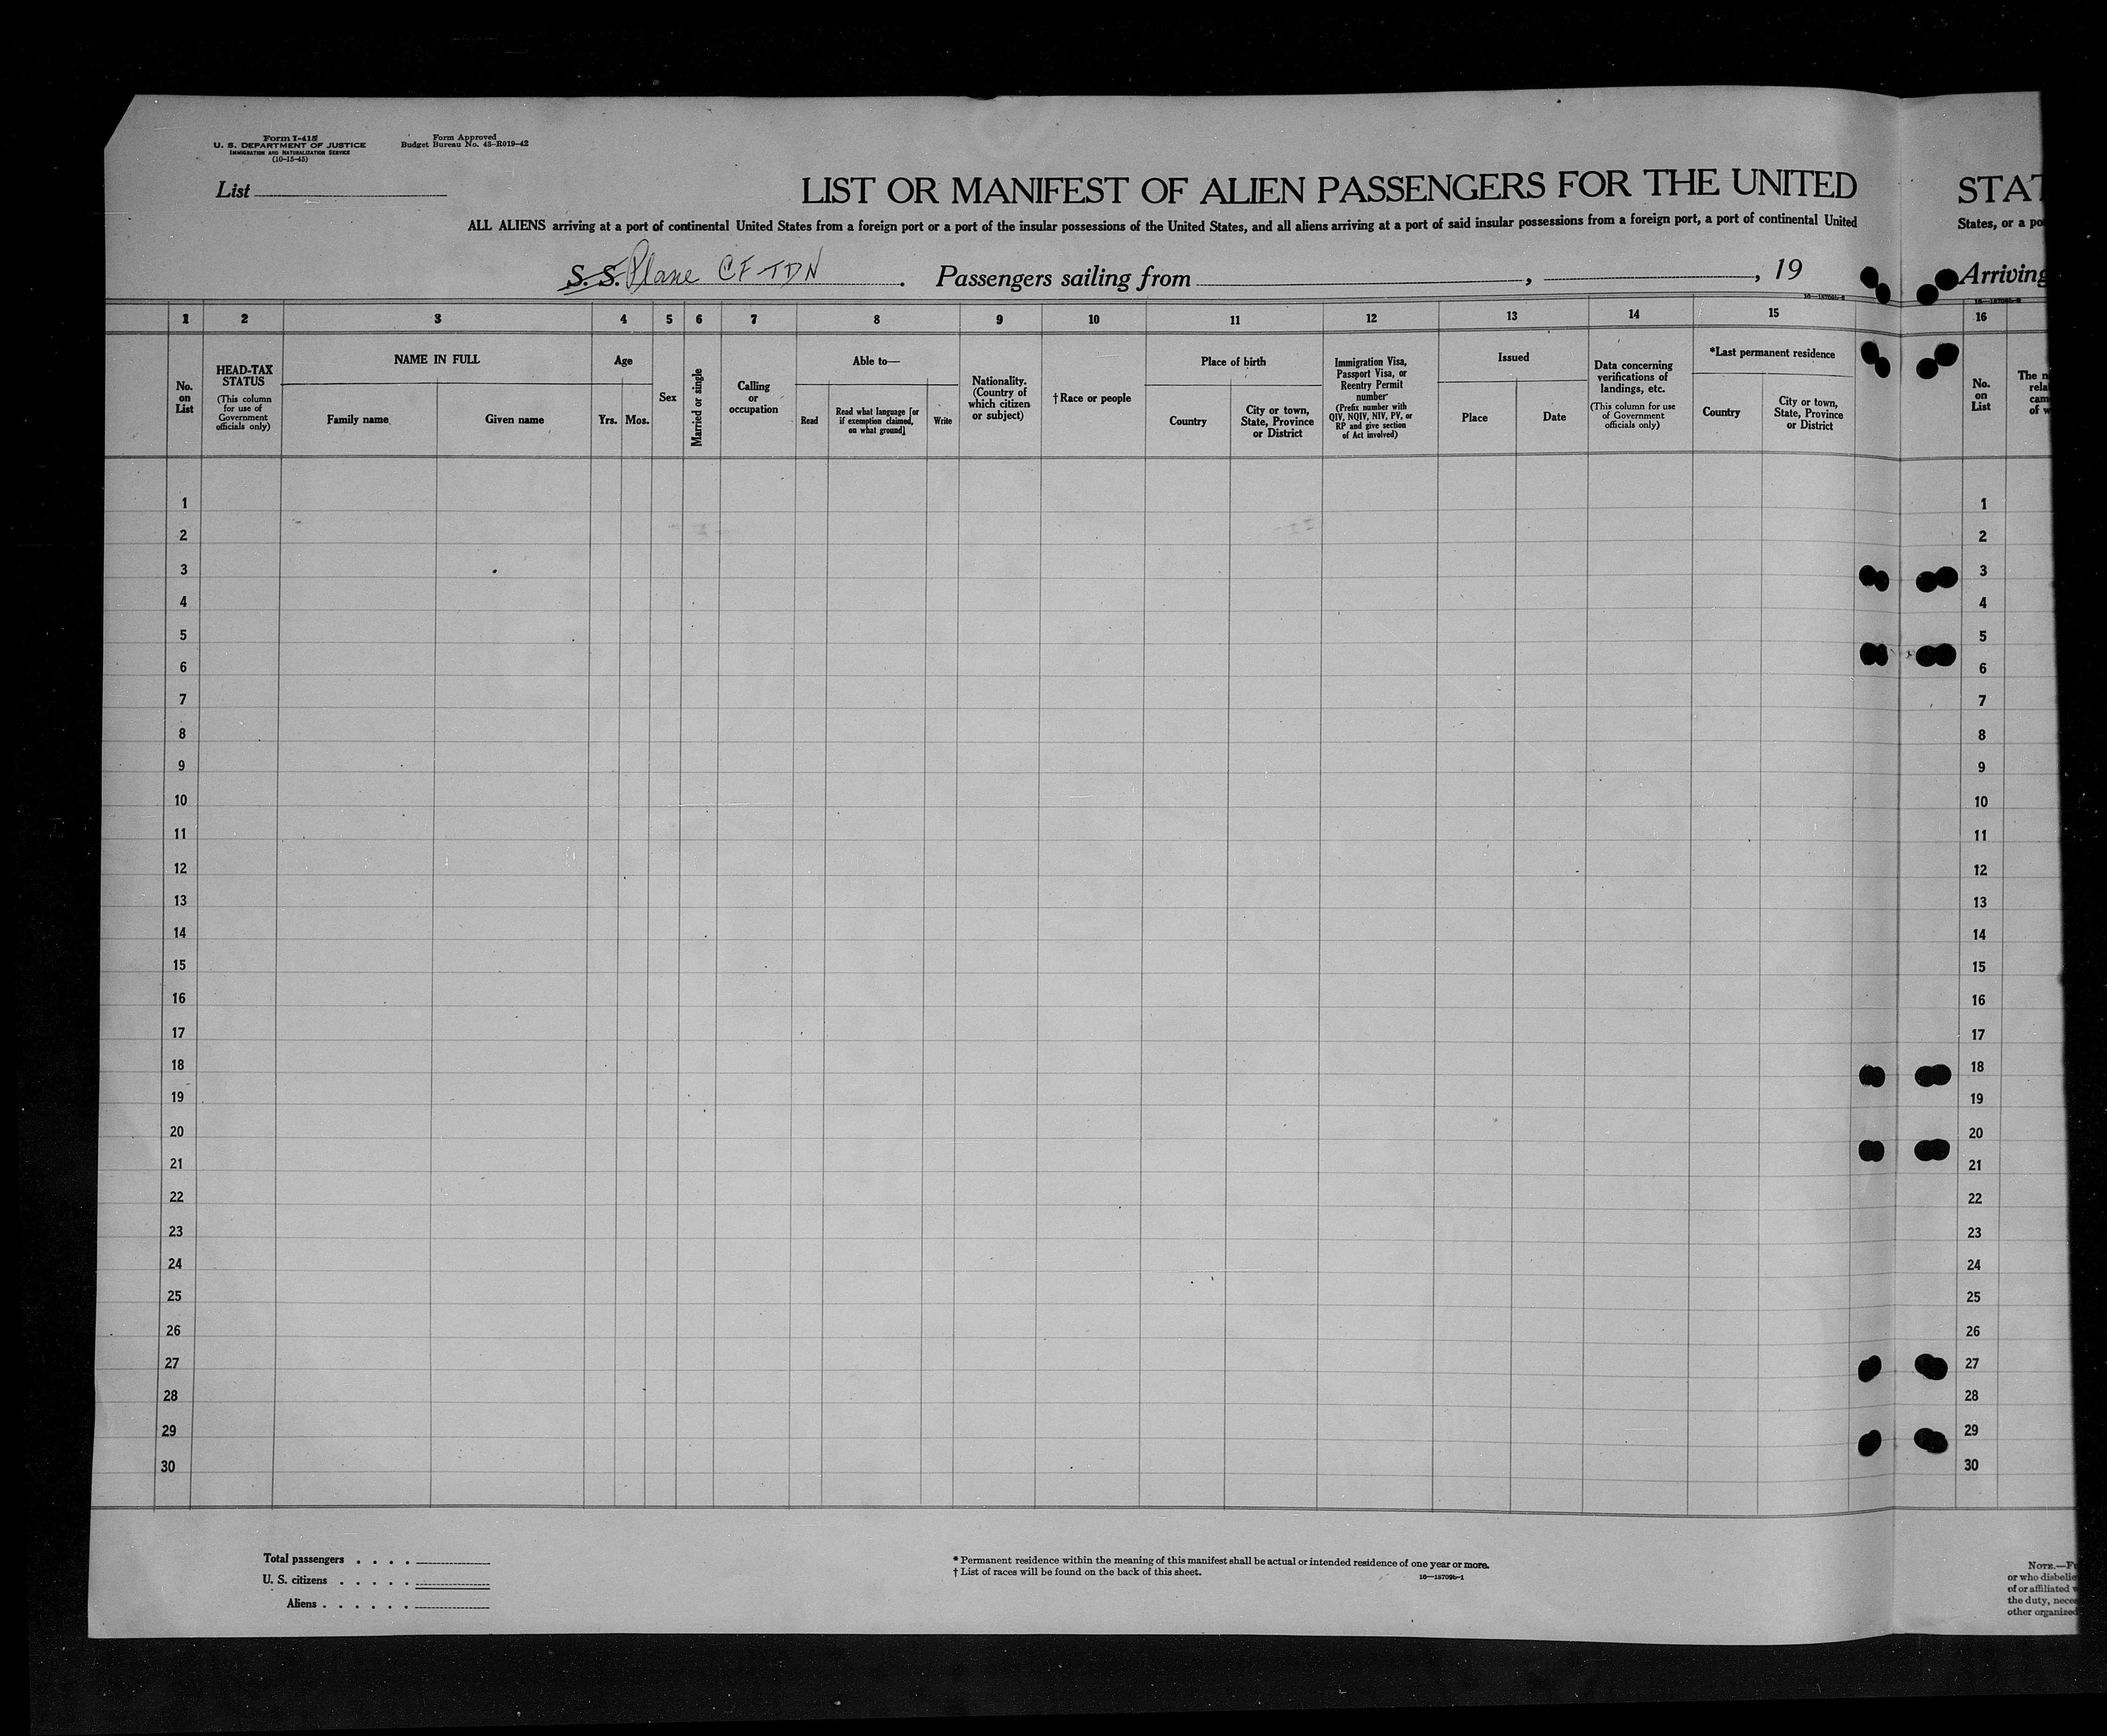 Form I-415
U. S. DEPARTMENT OF JUSTICE
IMMIGRATION AND NATURALIZATION SERVICE
(10-15-45)
Form Approved
Budget Bureau No. 43-R019-42
List
LIST OR MANIFEST OF ALIEN PASSENGERS FOR THE UNITED
STAT
ALL ALIENS arriving at a port of continental United States from a foreign port or a port of the insular possessions of the United States, and all aliens arriving at a port of said insular possessions from a foreign port, a port of continental United
States, or a po
S. S. Plane CF-TDN . Passengers sailing from , , 19
Arriving
1 2 3 4 5 6 7 8 9 10 11 12 13 14 15 16
No.
on
List
HEAD-TAX
STATUS
(This column
for use of
Government
officials only)
NAME IN FULL
Family name
Given name
Age
Yrs. Mos.
Sex
Married or single
Calling
or
occupation
Able to—
Read
Read what language [or
if exemption claimed,
on what ground]
Write
Nationality.
(Country of
which citizen
or subject)
†Race or people
Place of birth
Country
City or town,
State, Province
or District
Immigration Visa,
Passport Visa, or
Reentry Permit
number
(Prefix number with
QIV, NQIV, NIV, PV, or
RP and give section
of Act involved)
Issued
Place
Date
Data concerning
verifications of
landings, etc.
(This column for use
of Government
officials only)
*Last permanent residence
Country
City or town,
State, Province
or District
No.
on
List
The n
rela
cam
of w
1 1
2 2
3 3
4 4
5 5
6 6
7 7
8 8
9 9
10 10
11 11
12 12
13 13
14 14
15 15
16 16
17 17
18 18
19 19
20 20
21 21
22 22
23 23
24 24
25 25
26 26
27 27
28 28
29 29
30 30
Total passengers . . . .
U. S. citizens . . . . .
Aliens . . . . . .
* Permanent residence within the meaning of this manifest shall be actual or intended residence of one year or more.
† List of races will be found on the back of this sheet.
16—18709b-1
NOTE.—Fu
or who disbelie
of or affiliated w
the duty, neces
other organized